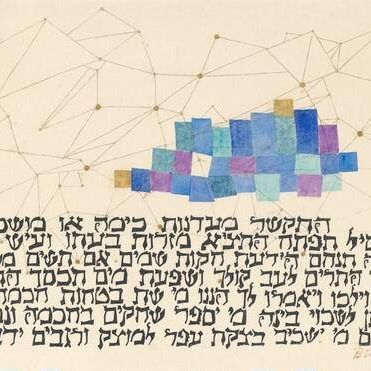 התקשר מעדנות כימה או
תפתח התציא מזרות בעתו ועיש
תנחם הידעת חקות שמים אם תשים
התרים לעב קולך ושפעת מים תכסך
וילכו ויאמרו לך הננו מי שת בטחות חכמה
לשכוי בינה מי יספר שחקים בחכמה
מי ישכיב בצקת עפר למוצק ורגבים